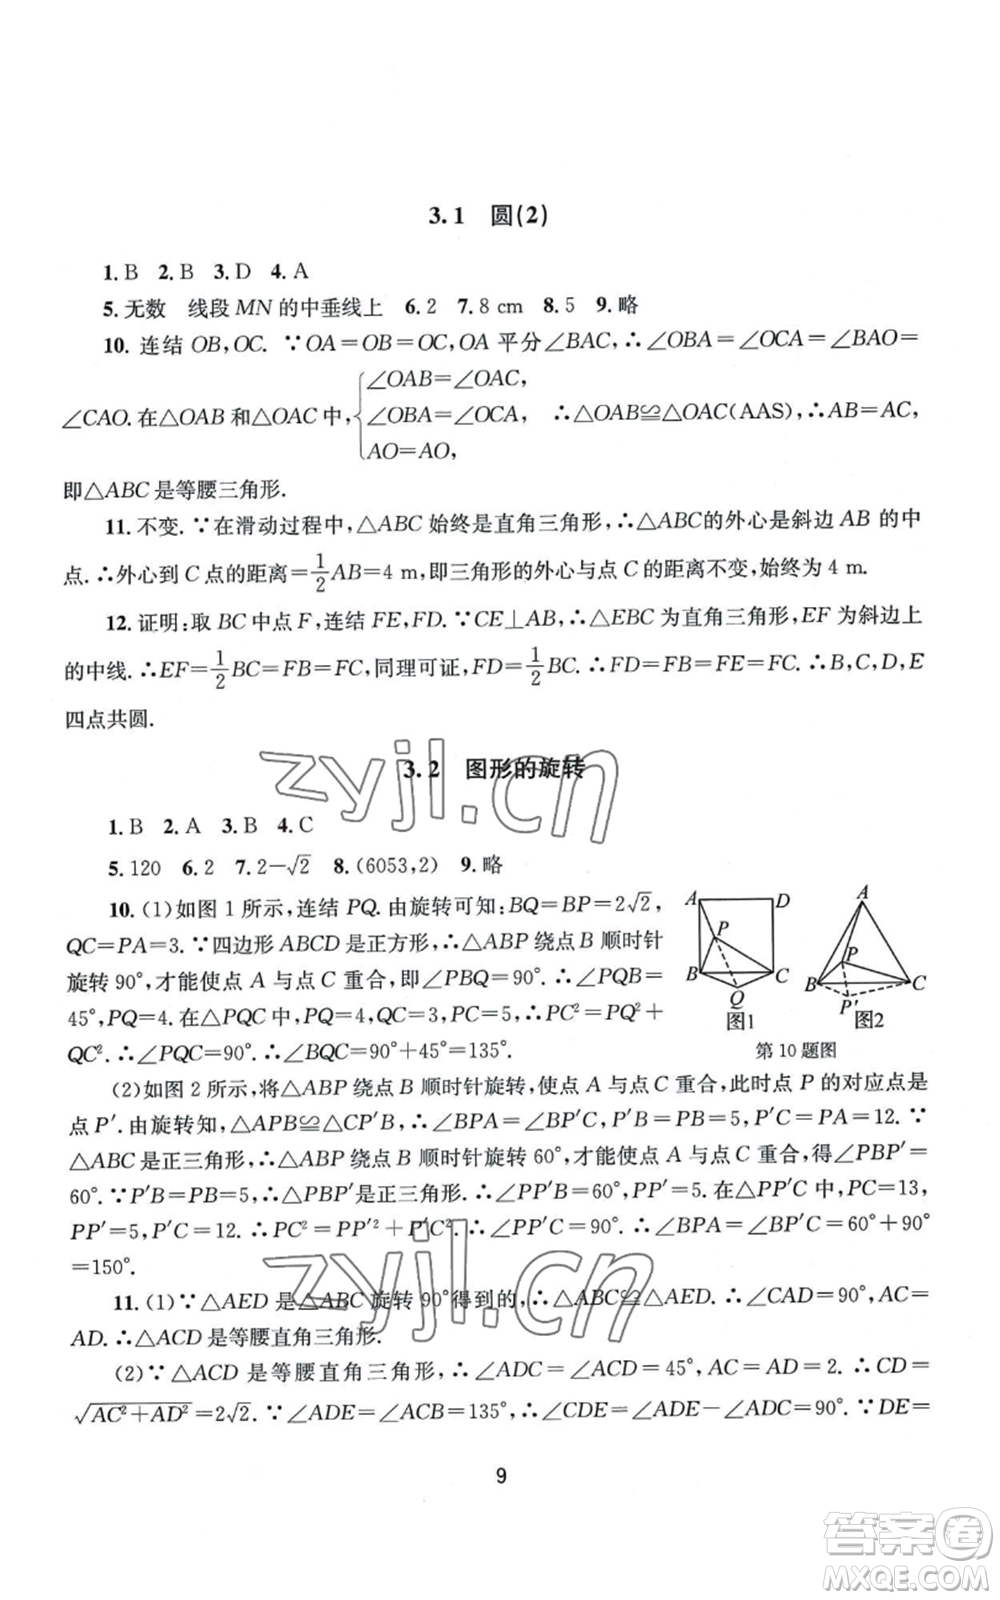 3.1 圆(2)
1.B 2.B 3.D 4.A
5.无数 线段MN的中垂线上 6.2 7.8 cm 8.5 9.略
10. 连结OB,OC. ∵OA=OB=OC,OA平分∠BAC,∴∠OBA=∠OCA=∠BAO=
∠OAB=∠OAC,
∠CAO.在△OAB和△OAC中, ∠OBA=∠OCA, ∴△OAB≌△OAC(AAS),∴AB=AC,
AO=AO,
即△ABC是等腰三角形.
11.不变.∵在滑动过程中,△ABC始终是直角三角形,∴△ABC的外心是斜边AB的中
点.∴外心到C点的距离=1/2AB=4 m,即三角形的外心与点C的距离不变,始终为4 m.
12.证明:取BC中点F,连结FE,FD.∵CE⊥AB,∴△EBC为直角三角形,EF为斜边上
的中线.∴EF=1/2BC=FB=FC,同理可证,FD=1/2BC.∴FD=FB=FE=FC.∴B,C,D,E
四点共圆.
3.2 图形的旋转
zyjl.cn
1.B 2.A 3.B 4.C
5.120 6.2 7.2−√2 8.(6053,2) 9.略
10.(1)如图1所示,连结PQ.由旋转可知:BQ=BP=2√2,
QC=PA=3.∵四边形ABCD是正方形,∴△ABP绕点B顺时针
旋转90°,才能使点A与点C重合,即∠PBQ=90°.∴∠PQB=
45°,PQ=4.在△PQC中,PQ=4,QC=3,PC=5,∴PC²=PQ²+
QC².∴∠PQC=90°.∴∠BQC=90°+45°=135°.
A D P B C Q
图1
A P B C P′
图2
第10题图
(2)如图2所示,将△ABP绕点B顺时针旋转,使点A与点C重合,此时点P的对应点是
点P′.由旋转知,△APB≌△CP′B,∴∠BPA=∠BP′C,P′B=PB=5,P′C=PA=12.∵
△ABC是正三角形,∴△ABP绕点B顺时针旋转60°,才能使点A与点C重合,得∠PBP′=
60°.∵P′B=PB=5,∴△PBP′是正三角形.∴∠PP′B=60°,PP′=5.在△PP′C中,PC=13,
PP′=5,P′C=12.∴PC²=PP′²+P′C².∴∠PP′C=90°.∴∠BPA=∠BP′C=60°+90°
=150°.
zyjl.cn
11.(1)∵△AED是△ABC旋转90°得到的,∴△ABC≌△AED.∴∠CAD=90°,AC=
AD.∴△ACD是等腰直角三角形.
(2)∵△ACD是等腰直角三角形,∴∠ADC=∠ACD=45°,AC=AD=2.∴CD=
√(AC²+AD²)=2√2.∵∠ADE=∠ACB=135°,∴∠CDE=∠ADE−∠ADC=90°.∵DE=
9
答案卷
MXQE.COM